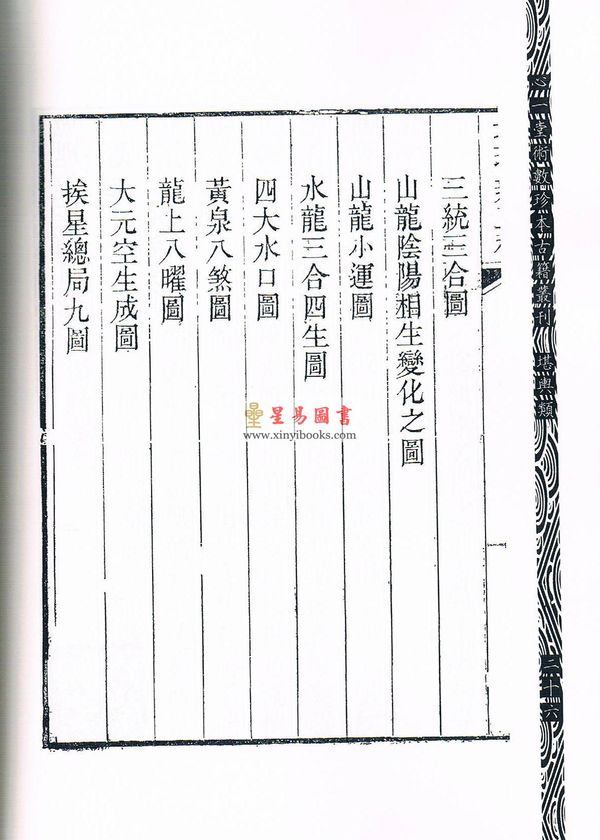 心一堂術數珍本古籍叢刊 堪輿類
三統三合圖
山龍陰陽相生變化之圖
山龍小運圖
水龍三合四生圖
四大水口圖
黃泉八煞圖
龍上八曜圖
大元空生成圖
挨星總局九圖
一
二十六
星易圖書
www.xinyibooks.com